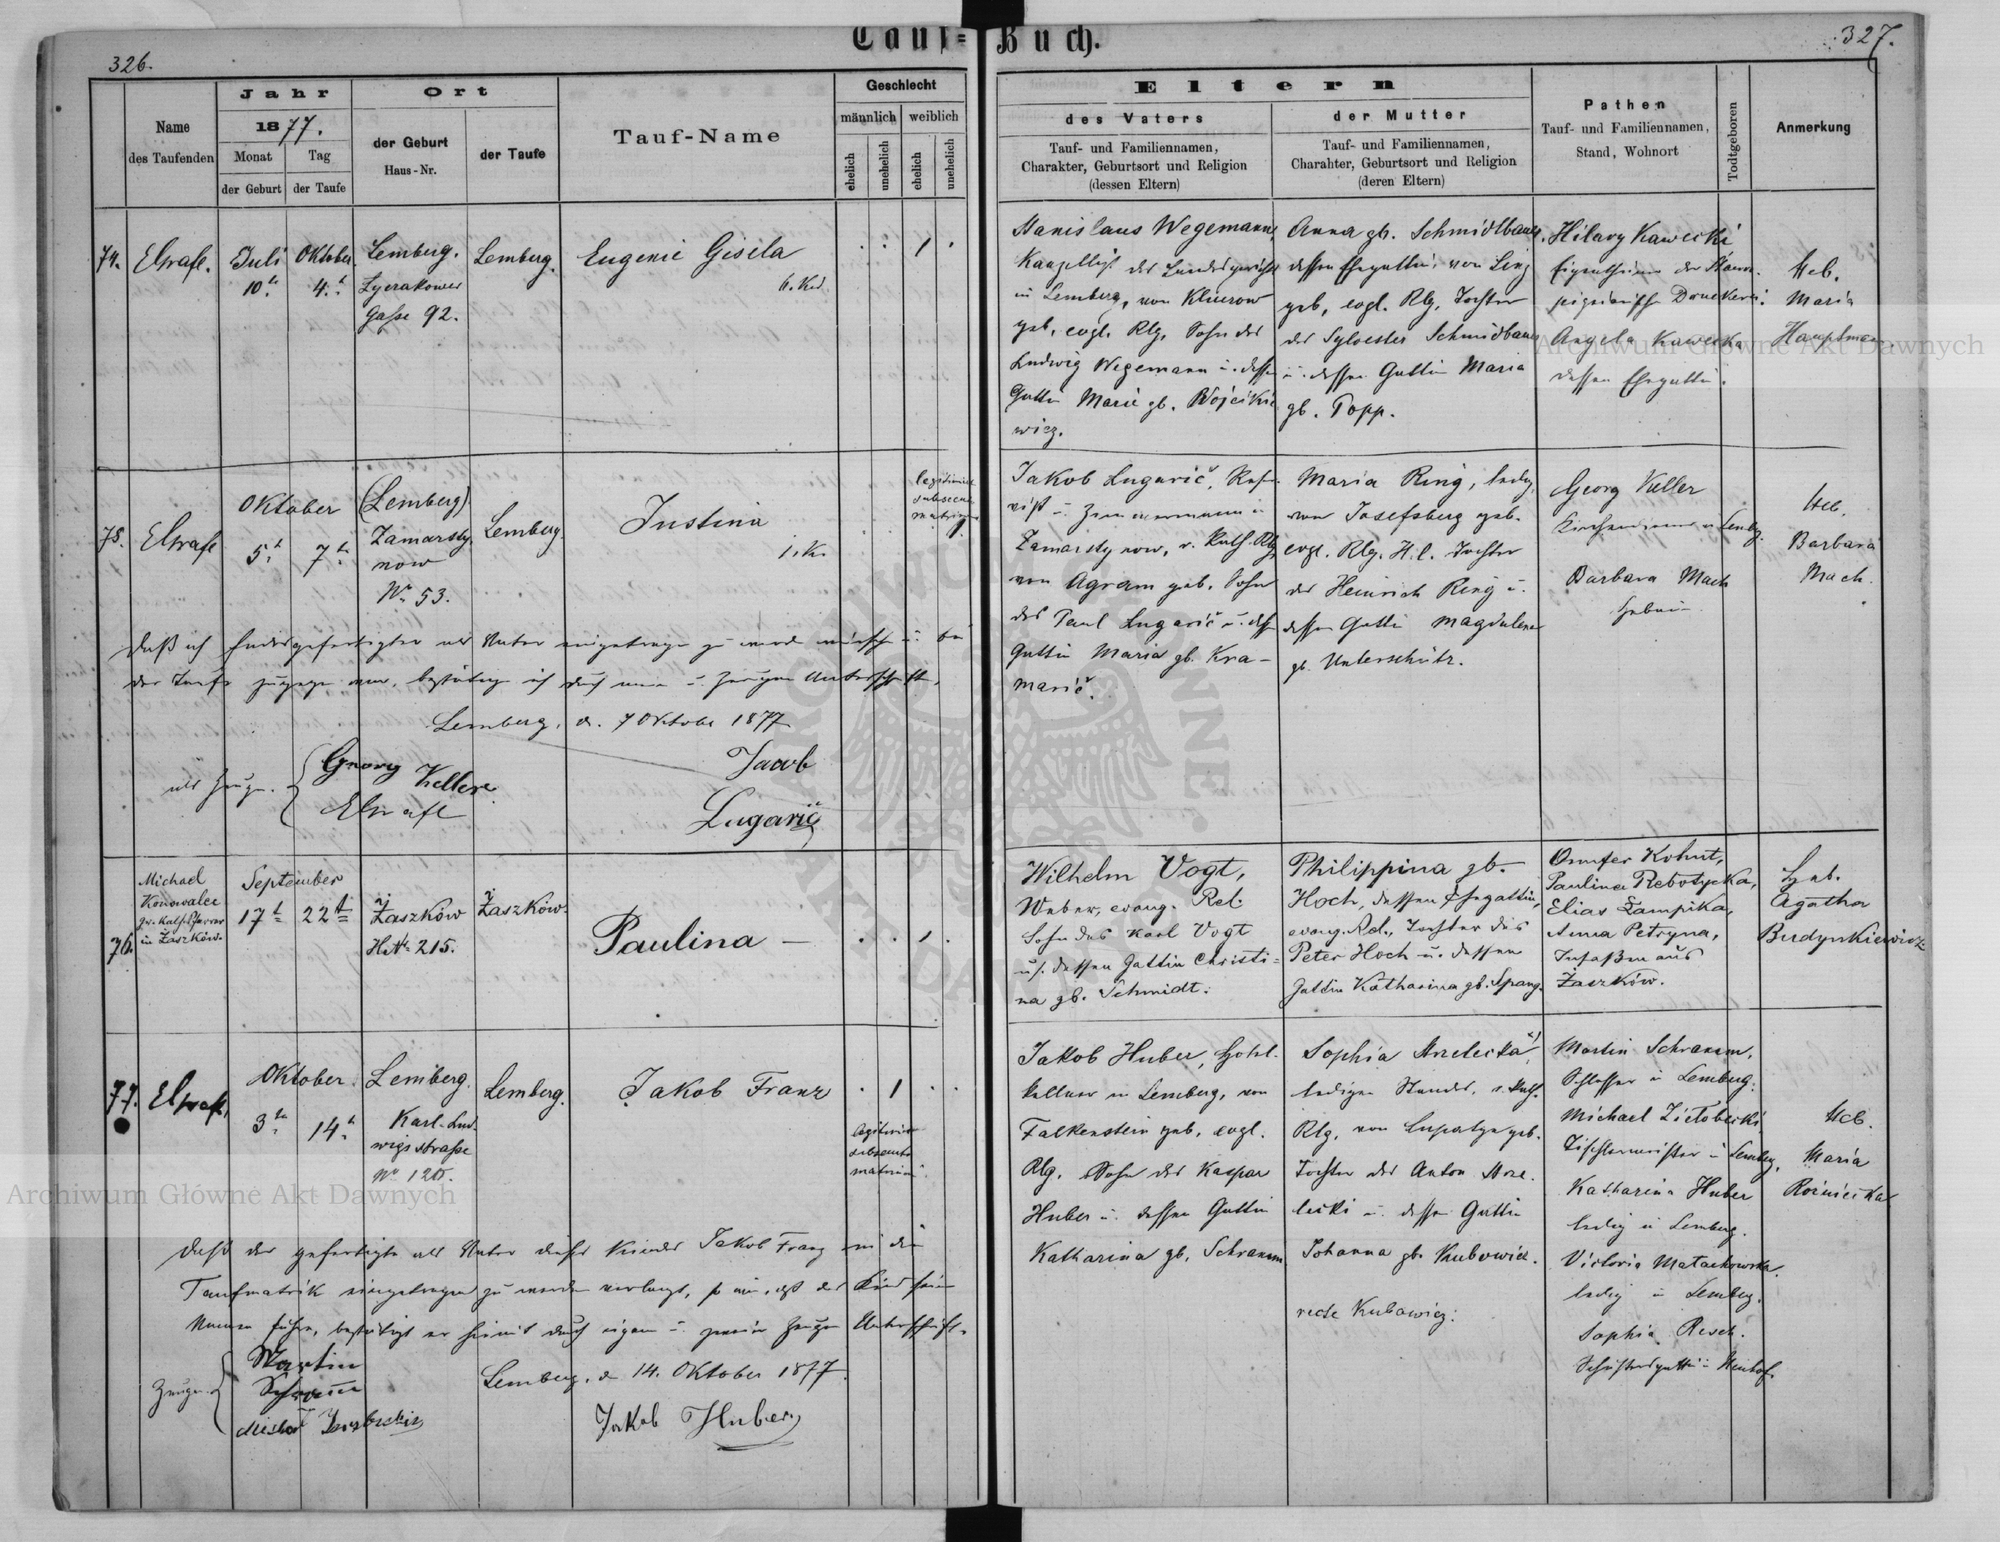 326.
Tauf=Buch.
327.
Name
des Taufenden
Jahr
1877.
Monat
Tag
der Geburt
der Taufe
Ort
der Geburt
Haus-Nr.
der Taufe
Tauf-Name
Geschlecht
männlich
weiblich
ehelich
unehelich
ehelich
unehelich
Eltern
des Vaters
Tauf- und Familiennamen,
Charakter, Geburtsort und Religion
(dessen Eltern)
der Mutter
Tauf- und Familiennamen,
Charakter, Geburtsort und Religion
(deren Eltern)
Pathen
Tauf- und Familiennamen,
Stand, Wohnort
Todtgeboren
Anmerkung
74.
Juli
10.
Oktober
4.
Lemberg.
Lyczakower
Gasse 92.
Lemberg.
Eugenie Gisela
Stanislaus Wegemann,
Kanzellist des Landesgerichts
in Lemberg, von
geb, evgl. Rlg, Sohn des
Ludwig Wegemann u. dessen
Gattin Marie gb. Wojcikie
wicz.
Anna gb. Schmidtbauer,
dessen Ehegattin, von Linz
geb, evgl. Rlg, Tochter
des Sylvester Schmidbauer
u. dessen Gattin Maria
gb. Popp.
Hilary Kawecki
Eigenthümer der
Angela Kawecka
dessen Ehegattin.
Heb.
Maria
Hauptman.
75.
Oktober
5.
7.
(Lemberg)
Zamarsty
now
Nr. 53.
Lemberg.
Justina
Jakob Lugarič,
Zimmermann in
Zamarstynow, r. kath. Rlg,
von Agram geb. Sohn
des Paul Lugarič u. dessen
Gattin Maria gb. Kra-
marič.
Maria Ring, ledig,
von Josefsberg geb.
evgl. Rlg. H. C. Tochter
des Heinrich Ring u.
dessen Gattin Magdalena
gb. Unterschütz.
Georg Keller
Barbara Mach
Hebamme
Heb.
Barbara
Mach.
Daß ich Endesgefertigter als Vater eingetragen zu werden wünsche u. bei
der Taufe zugegen war, bestätige ich durch meine u. Zeugen Unterschrift.
Lemberg, d. 7 Oktober 1877
als Zeugen.
Georg Keller
Jacob
Lugarič
76.
Michael
Konowalec
gr. kath. Pfarrer
in Żaszków.
September
17t
22t
Żaszków
H.Nr. 215.
Żaszków.
Paulina —
Wilhelm Vogt,
Weber, evang. Rel.
Sohn des Karl Vogt
u. dessen Gattin Christi=
na gb. Schmidt.
Philippina gb.
Hoch, dessen Ehegattin,
evang. Rel., Tochter des
Peter Hoch u. dessen
Gattin Katharina gb. Spang.
Onufer Kohut,
Paulina Rebotycka,
Elias Łampika,
Anna Petryna,
Insaßen aus
Żaszków.
Heb.
Agatha
Budynkiewicz
77.
Oktober
3.
14.
Lemberg.
Karl-Lud
wigs strasse
Lemberg.
Jakob Franz
Jakob Huber, Hotel
kellner in Lemberg, von
Falkenstein geb, evgl.
Rlg. Sohn des Kaspar
Huber u. dessen Gattin
Katharina gb. Schramm
Sophia Strzelecka,
ledigen Standes, r. kath.
Rlg. von Lopatyn geb.
Tochter des Anton Strze
lecki u. dessen Gattin
Johanna gb. Kubowicz.
recte Kubawicz.
Martin Schramm,
Schlosser in Lemberg.
Michael
Tischlermeister in Lemberg,
Katharina Huber
ledig in Lemberg.
Victoria Mataskowska,
ledig in Lemberg.
Sophia Resch.
Heb.
Maria
Rożniecka
Daß der gefertigte als Vater dieses Kindes Jakob Franz in die
Taufmatrik eingetragen zu werden verlangt, so wie, daß das Kind seinen
Namen führe, bestätigt er hiemit durch eigene u. zweier Zeugen Unterschrift.
Lemberg, d. 14. Oktober 1877.
Zeugen.
Martin
Schramm
Jakob Huber
Archiwum Główne Akt Dawnych
Archiwum Główne Akt Dawnych